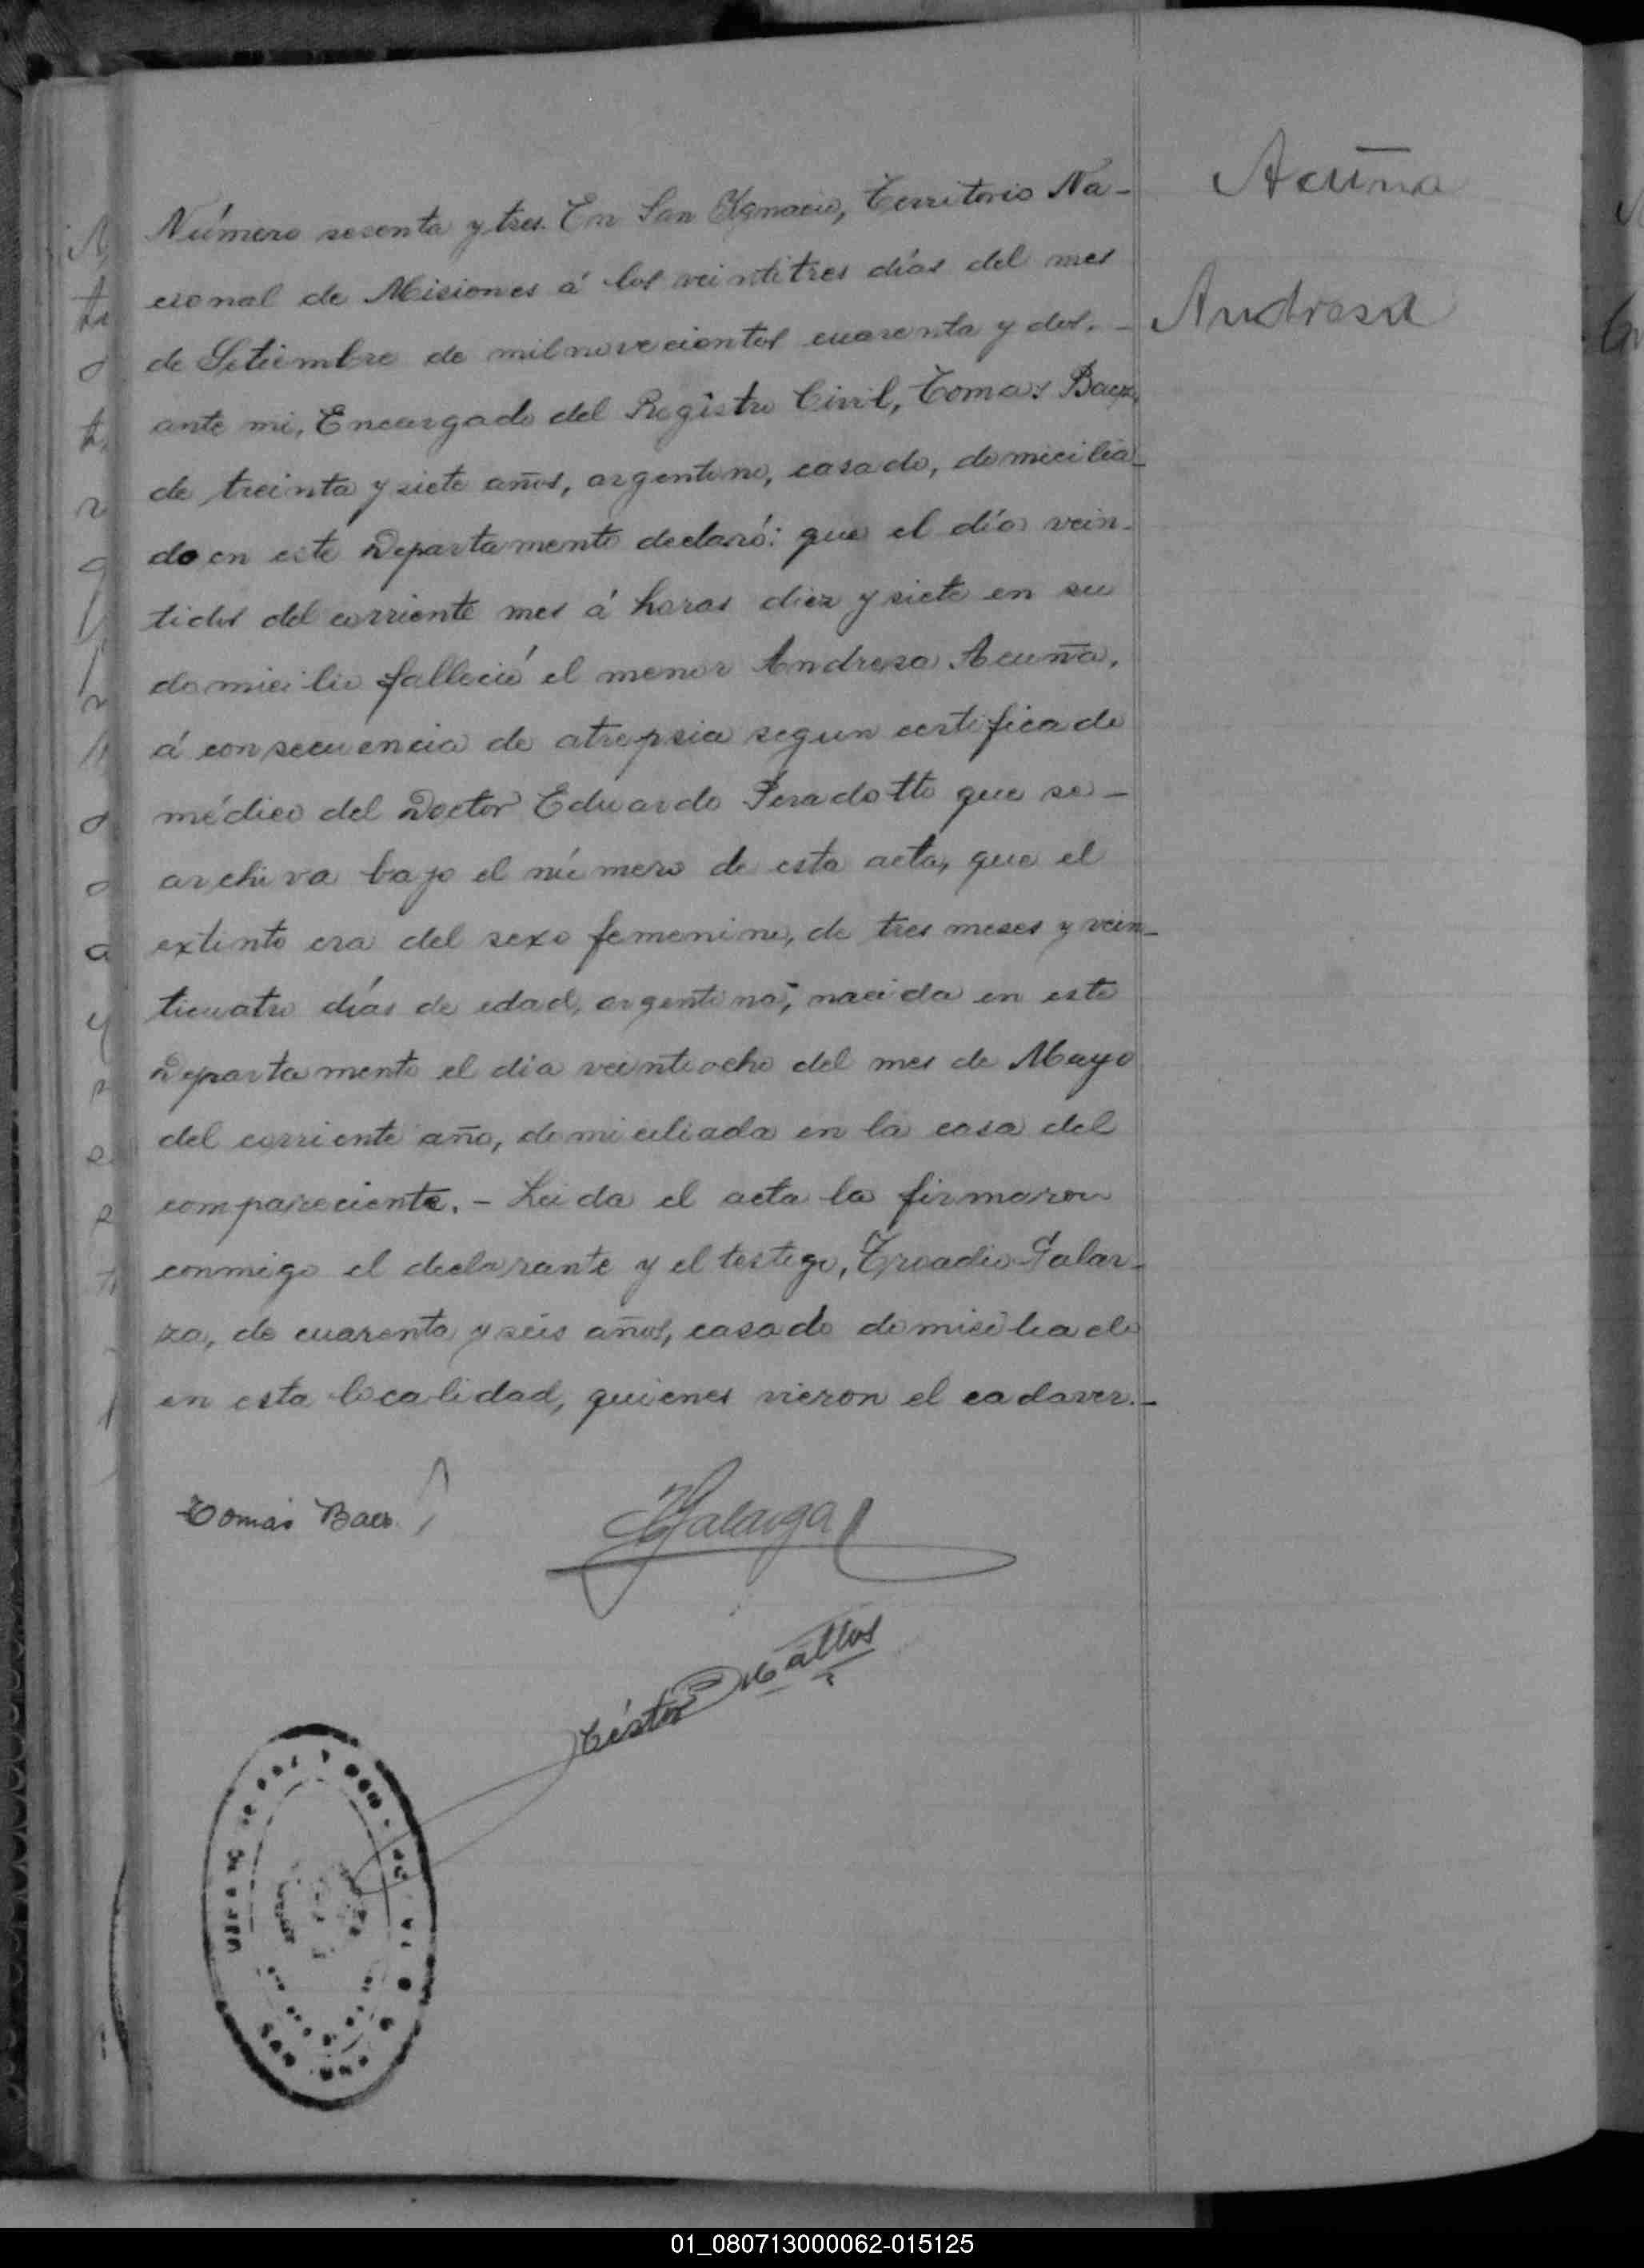 Acuña
Andresa
Número sesenta y tres. En San Ygnacio, Territorio Na-
cional de Misiones á los veintitres días del mes
de Setiembre de mil novecientos cuarenta y dos. -
ante mi, Encargado del Registro Civil, Tomas Baez,
de treinta y siete años, argentino, casado, domicilia-
do en este Departamento declaró: que el día vein-
tidos del corriente mes á horas diez y siete en su
domicilio falleció el menor Andresa Acuña,
á consecuencia de atrepsia segun certificado
médico del Doctor Eduardo Peradotto que se -
archiva bajo el número de esta acta, que el
extinto era del sexo femenino, de tres meses y vein-
ticuatro días de edad, argentina, nacida en este
Departamento el dia veintiocho del mes de Mayo
del corriente año, domiciliada en la casa del
compareciente. - Leida el acta la firmaron
conmigo el declarante y el testigo, Troadio Galar-
za, de cuarenta y seis años, casado domiciliado
en esta localidad, quienes vieron el cadaver. -
Tomás Baez
Galarza
01_080713000062-015125